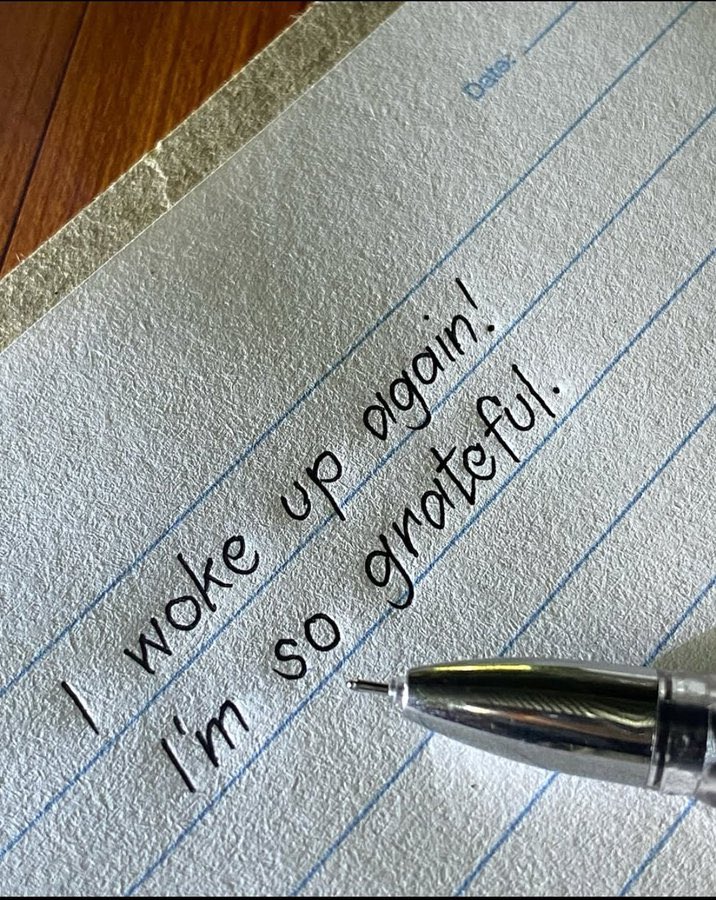 Date:
I woke up again!
I'm so grateful.